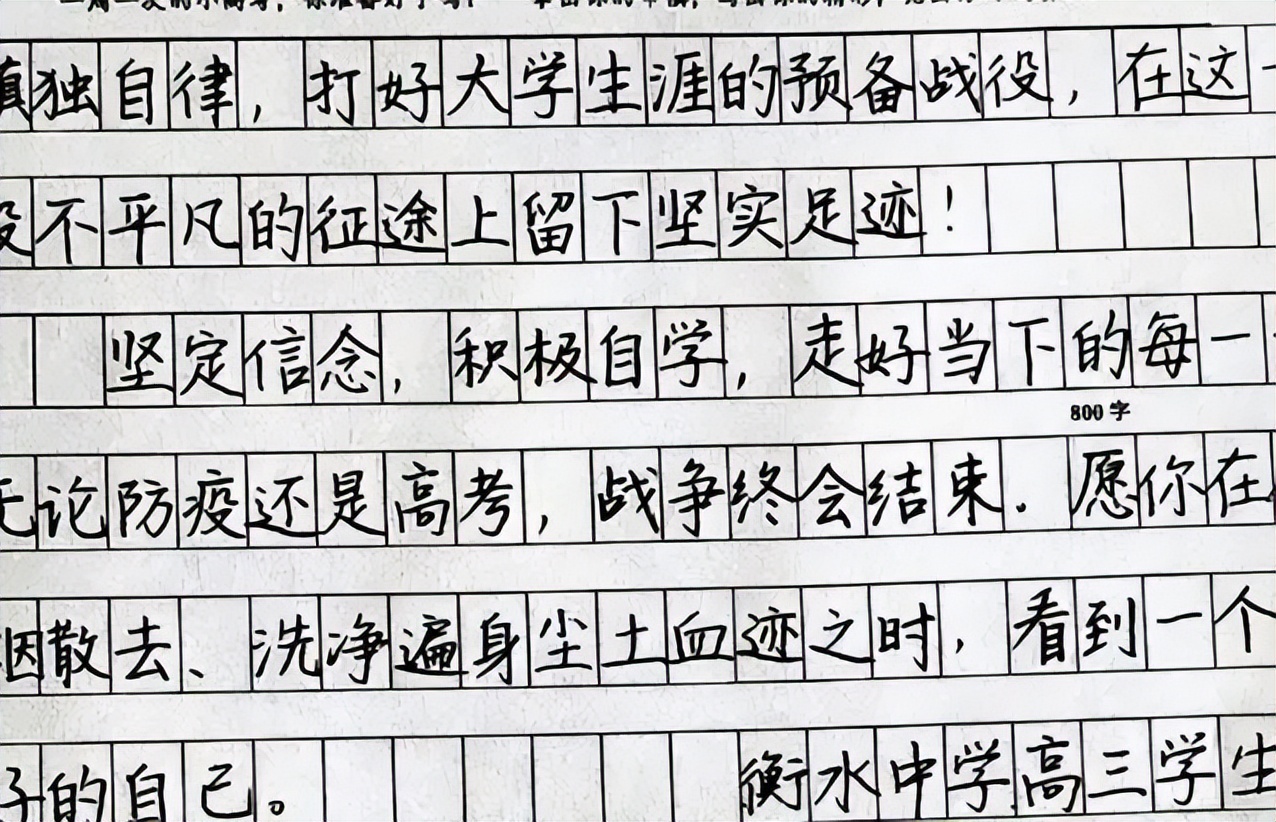 独自律，打好大学生涯的预备战役，在这一
不平凡的征途上留下坚实足迹！
坚定信念，积极自学，走好当下的每一
800字
无论防疫还是高考，战争终会结束．愿你在
散去、洗净遍身尘土血迹之时，看到一个
的自己。 衡水中学高三学生